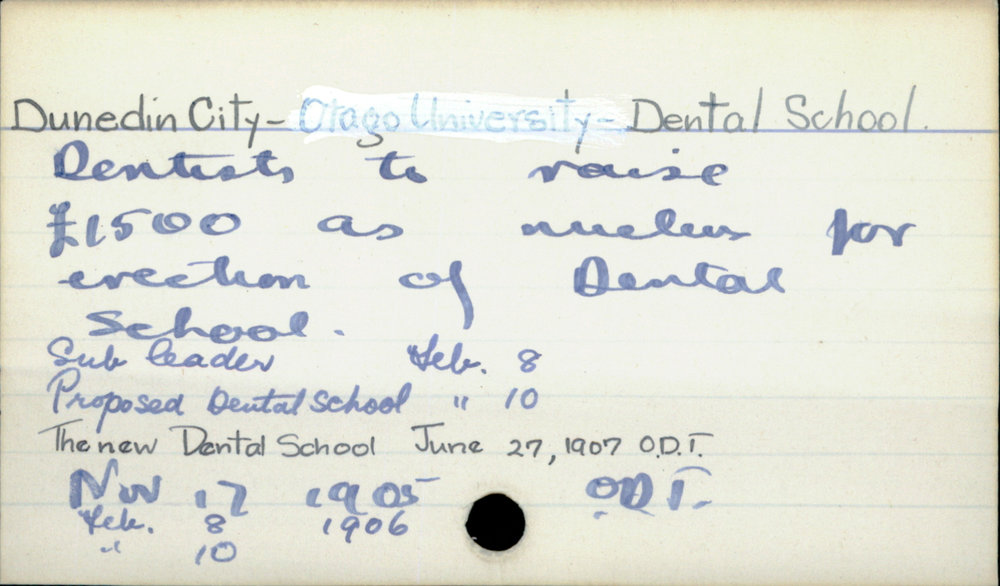 Dunedin City - Otago University - Dental School.
Dentists to raise
£1500 as nucleus for
erection of Dental
School.
Sub leader Feb. 8
Proposed Dental School " 10
The new Dental School June 27, 1907 O.D.T.
Nov 17 1905 O.D.T.
Feb. 8 1906
" 10